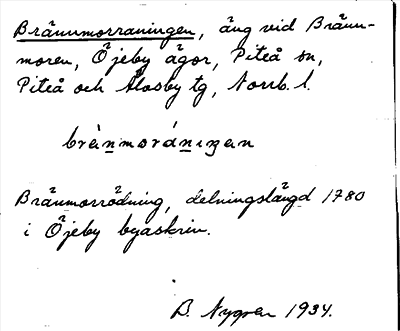 Brännmorraningen, äng vid Bränn-
moren, Öjeby ägor, Piteå sn,
Piteå och Älvsby tg, Norrb. l.
Brånmorrödning, delningslängd 1780
i Öjeby byaskrin.
B. Nygren 1934.